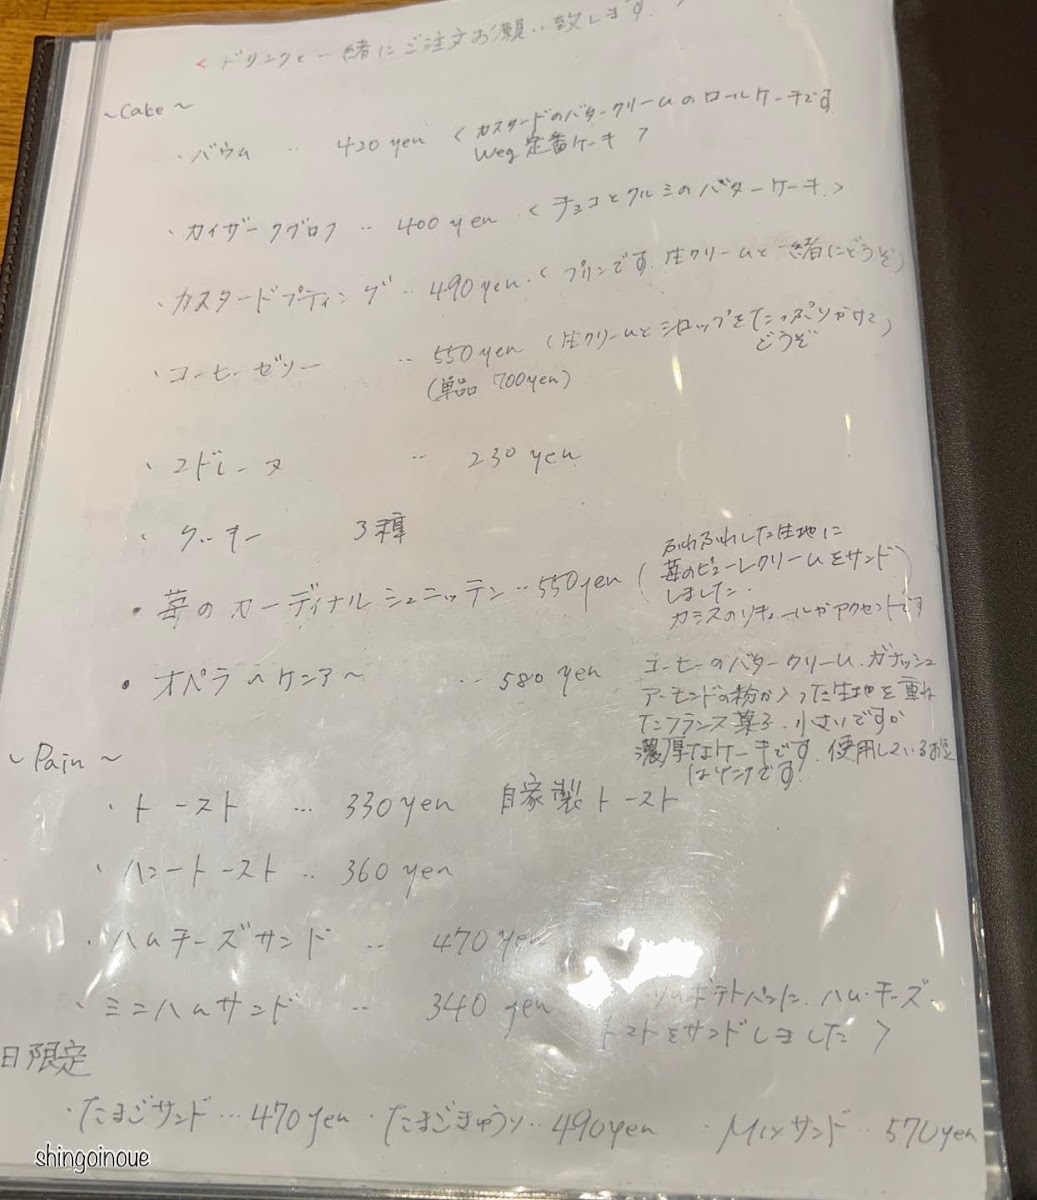 < ドリンクと一緒にご注文お願い致します。>
~Cake~
・バウム ‥ 420 yen < カスタードのバタークリームのロールケーキです
Weg 定番ケーキ >
・カイザークグロフ ‥ 400 yen < チョコとクルミのバターケーキ.>
・カスタードプティング ‥ 490 yen.< プリンです.生クリームと一緒にどうぞ>
・コーヒーゼリー ‥ 550 yen (生クリームとシロップをたっぷりかけて
どうぞ
(単品 700yen)
・マドレーヌ ‥ 230 yen
・クッキー 3種
・苺のカーディナルシュニッテン‥550yen
(ふわふわした生地に
苺のピューレクリームをサンド
しました.
カシスのリキュールがアクセントです
・オペラ~ケニア~ ‥ 580 yen
コーヒーのバタークリーム.ガナッシュ
アーモンドの粉が入った生地を重ね
たフランス菓子.小さいですが
濃厚なケーキです.使用しているお豆
はケニアです.
~Pain~
・トースト ‥ 330yen 自家製トースト
・ハニートースト ‥ 360 yen
・ハムチーズサンド ‥ 470 yen
・ミニハムサンド ‥ 340 yen
パンに.ハム・チーズ.
トマトをサンドしました >
日限定
・たまごサンド…470yen ・たまごきゅうり‥490yen ・Mixサンド‥570yen
shingoinoue